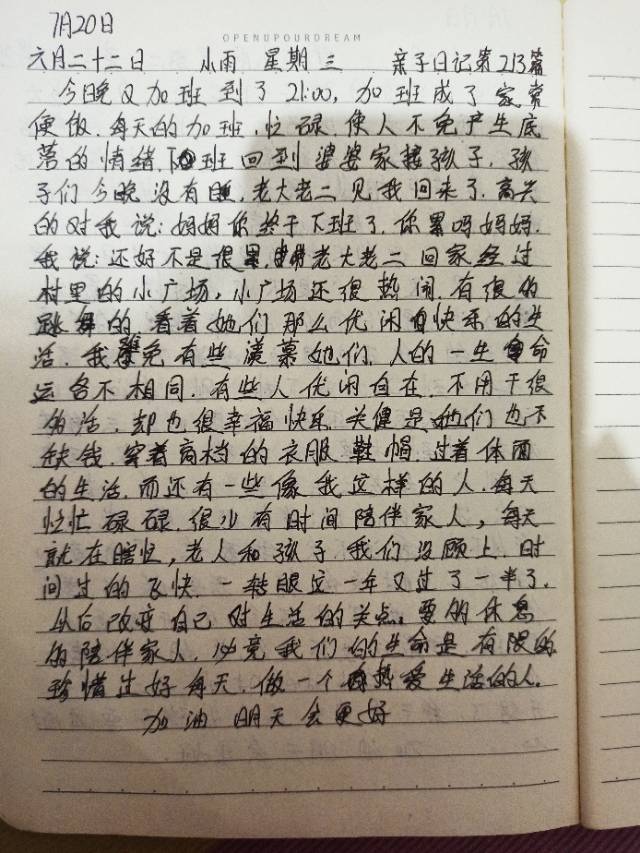 7月20日
OPENUPOURDREAM
六月二十二日 小雨 星期三 亲子日记第213篇
今晚又加班到了21:00,加班成了家常
便饭.每天的加班,忙碌.使人不免产生底
落的情绪.下班回到婆婆家接孩子.孩
子们今晚没有睡.老大老二见我回来了.高兴
的对我说:妈妈你终于下班了.你累吗妈妈.
我说:还好不是很累.老大老二回家经过
村里的小广场,小广场还很热闹.有很多
跳舞的.看着她们那么优闲自快乐的生
活.我难免有些羡慕她们.人的一生命
运各不相同.有些人优闲自在.不用干很
多活.却也很幸福快乐.关健是她们也不
缺钱.穿着高档的衣服鞋帽.过着体面
的生活.而还有一些像我这样的人.每天
忙忙碌碌.很少有时间陪伴家人,每天
就在瞎忙,老人和孩子我们没顾上.时
间过的飞快.一转眼这一年又过了一半了.
从后改变自己对生活的关点。要多休息
多陪伴家人.必竟我们的生命是有限的
珍惜过好每天.做一个热爱生活的人.
加油 明天会更好